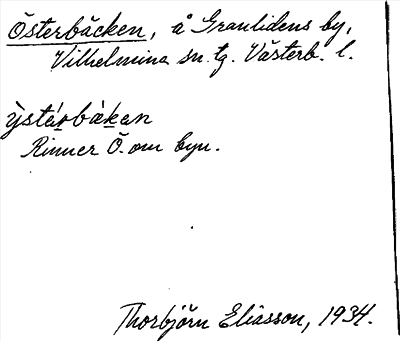 Österbäcken, å Granlidens by,
Vilhelmina sn. tg. Västerb. l.
ỳstárbákan
Rinner Ö. om byn.
Thorbjörn Eliasson, 1934.